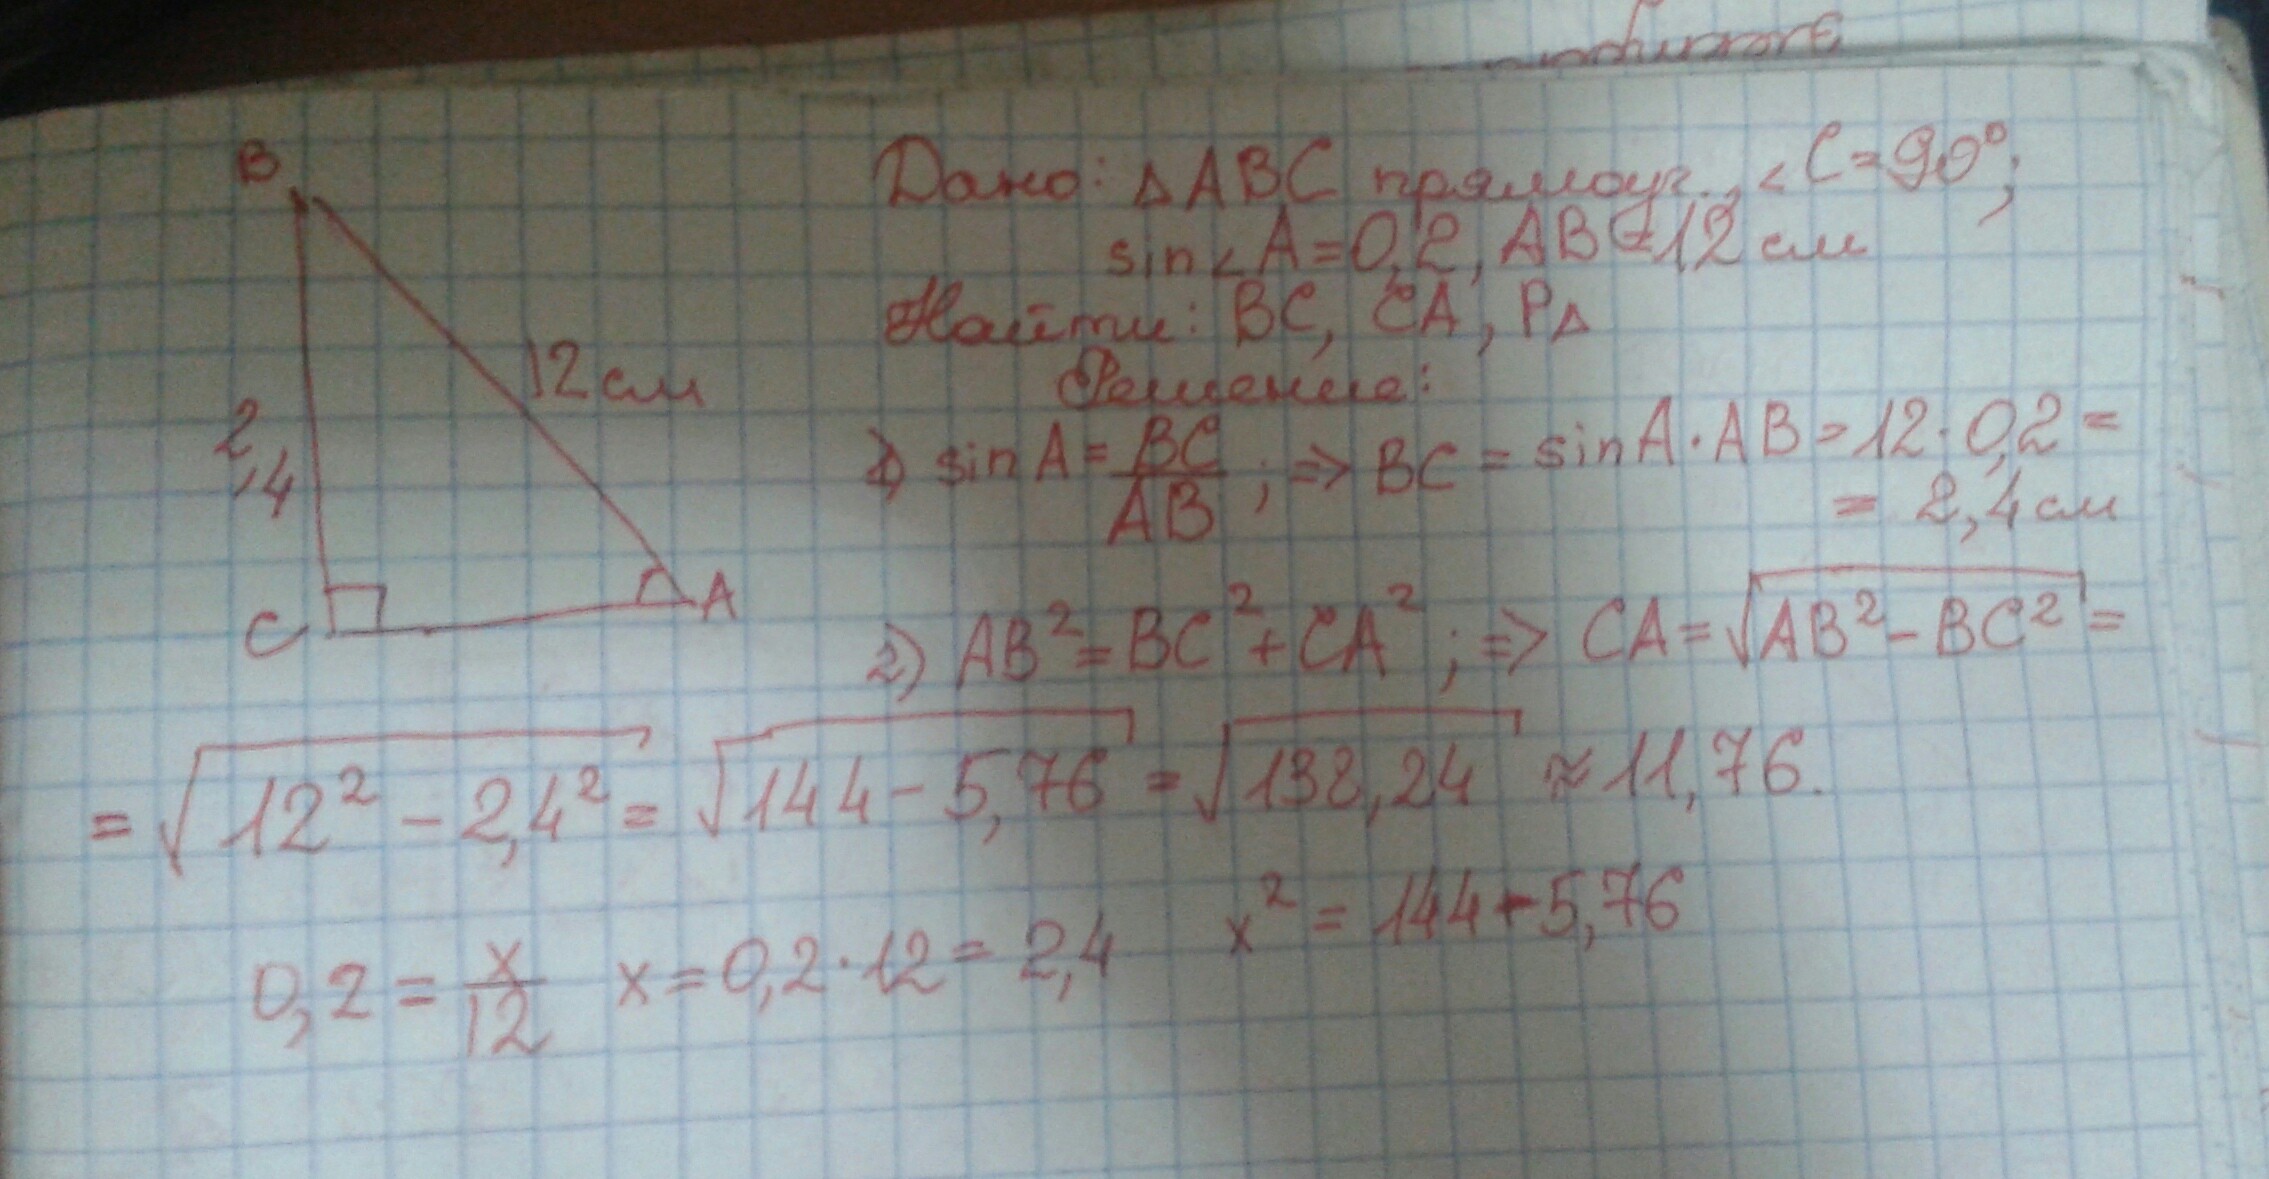 B
12 см
2,4
C
A
Дано: △ABC прямоуг., <C=90°;
sin<A=0,2, AB=12 см
Найти: BC, CA, P△
Решение:
1) sin A = BC/AB ; => BC = sin A · AB = 12 · 0,2 =
= 2,4 см
2) AB² = BC² + CA² ; => CA = √AB² – BC² =
= √12² – 2,4² = √144 – 5,76 = √138,24 ≈ 11,76.
0,2 = x/12 x = 0,2 · 12 = 2,4 x² = 144 – 5,76